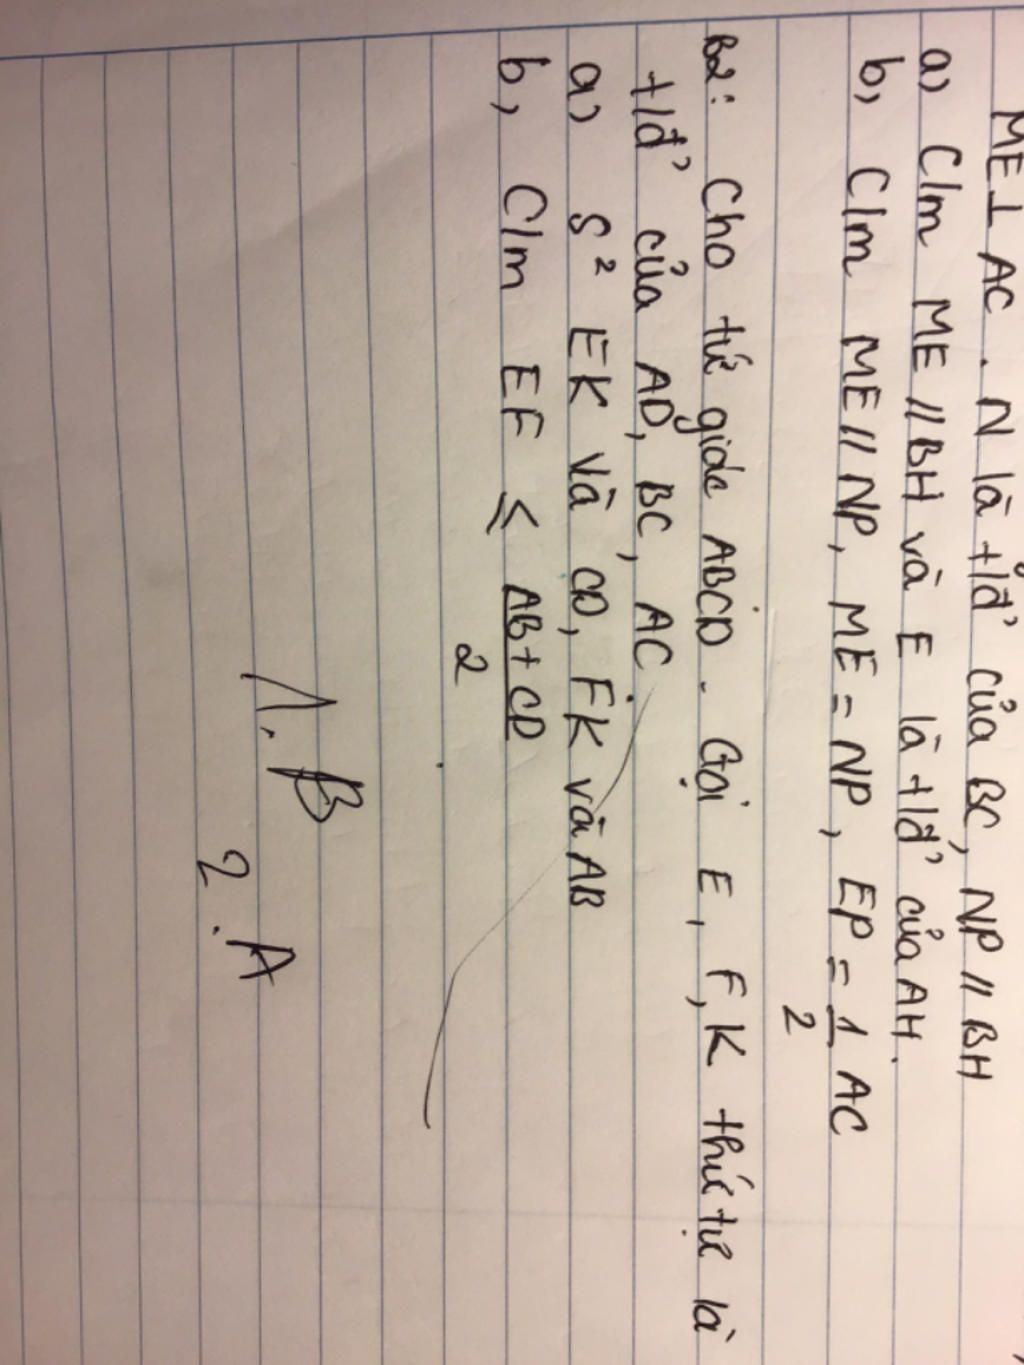 ME ⊥ AC. N là t/đ' của BC, NP // BH
a) C/m ME // BH và E là t/đ' của AH.
b, C/m ME // NP, ME = NP, EP = 1/2 AC
B2: Cho tứ giác ABCD. Gọi E, F, K thứ tự là
t/đ' của AD, BC, AC.
a) S² EK và CD, FK và AB
b, C/m EF ≤ AB + CD / 2
1. B
2. A